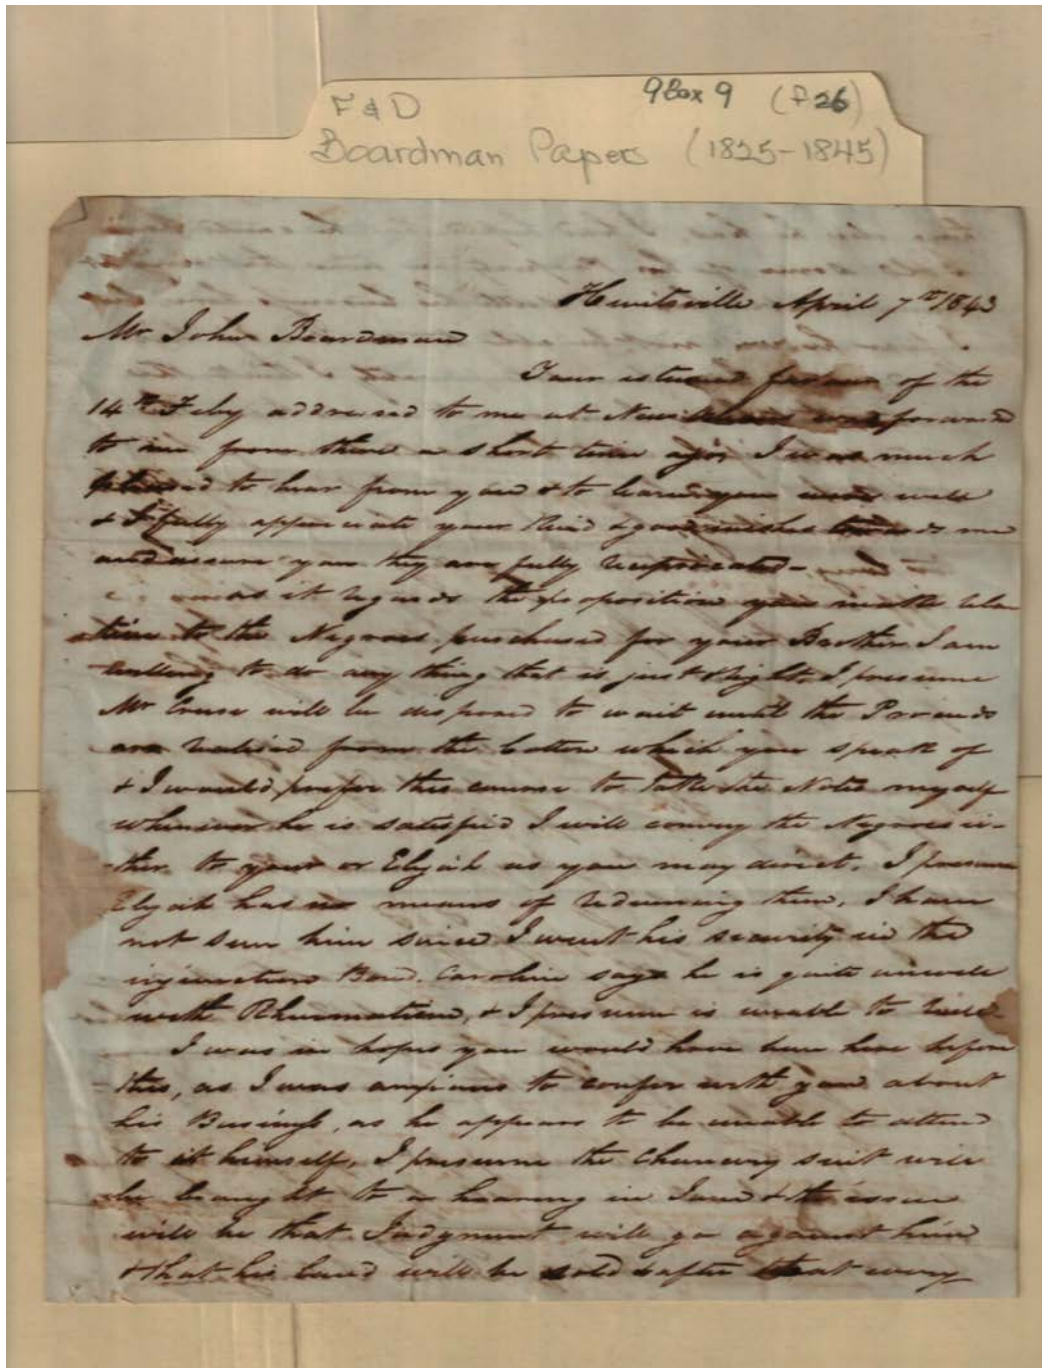 F & D 9 Box 9 (f 26)
Boardman Papers (1825-1845)
Huntsville April 7th 1843
Mr John Boardman
Your esteemed favour of the
14th Feby addressed to me at New Orleans was forwarded
to me from there a short time ago, I was much
pleased to hear from you & to learn you were well
& I fully appreciate your kind & good wishes towards me
and assure you they are fully reciprocated -
as it regards the proposition you make rela
tive to the Negroes purchased for your Brother I am
willing to do any thing that is just & right. I presume
Mr Cruse will be disposed to wait until the Proceeds
are realised from the Cotton which you speak of
& I would prefer this course to take the Notes myself
whenever he is satisfied I will convey the Negroes ei-
-ther to you or Elijah as you may direct. I presume
Elijah has no means of redeeming them, I have
not seen him since I went his security in the
injunction Bond. Caroline says he is quite unwell
with Rheumatism, & I presume is unable to ride
I was in hopes you would have been here before
this, as I was anxious to confer with you about
his Business, as he appears to be unable to attend
to it himself, I presume the Chancery suit will
be brought to a hearing in June & the issue
will be that Judgment will go against him
& that his land will be sold & after that every